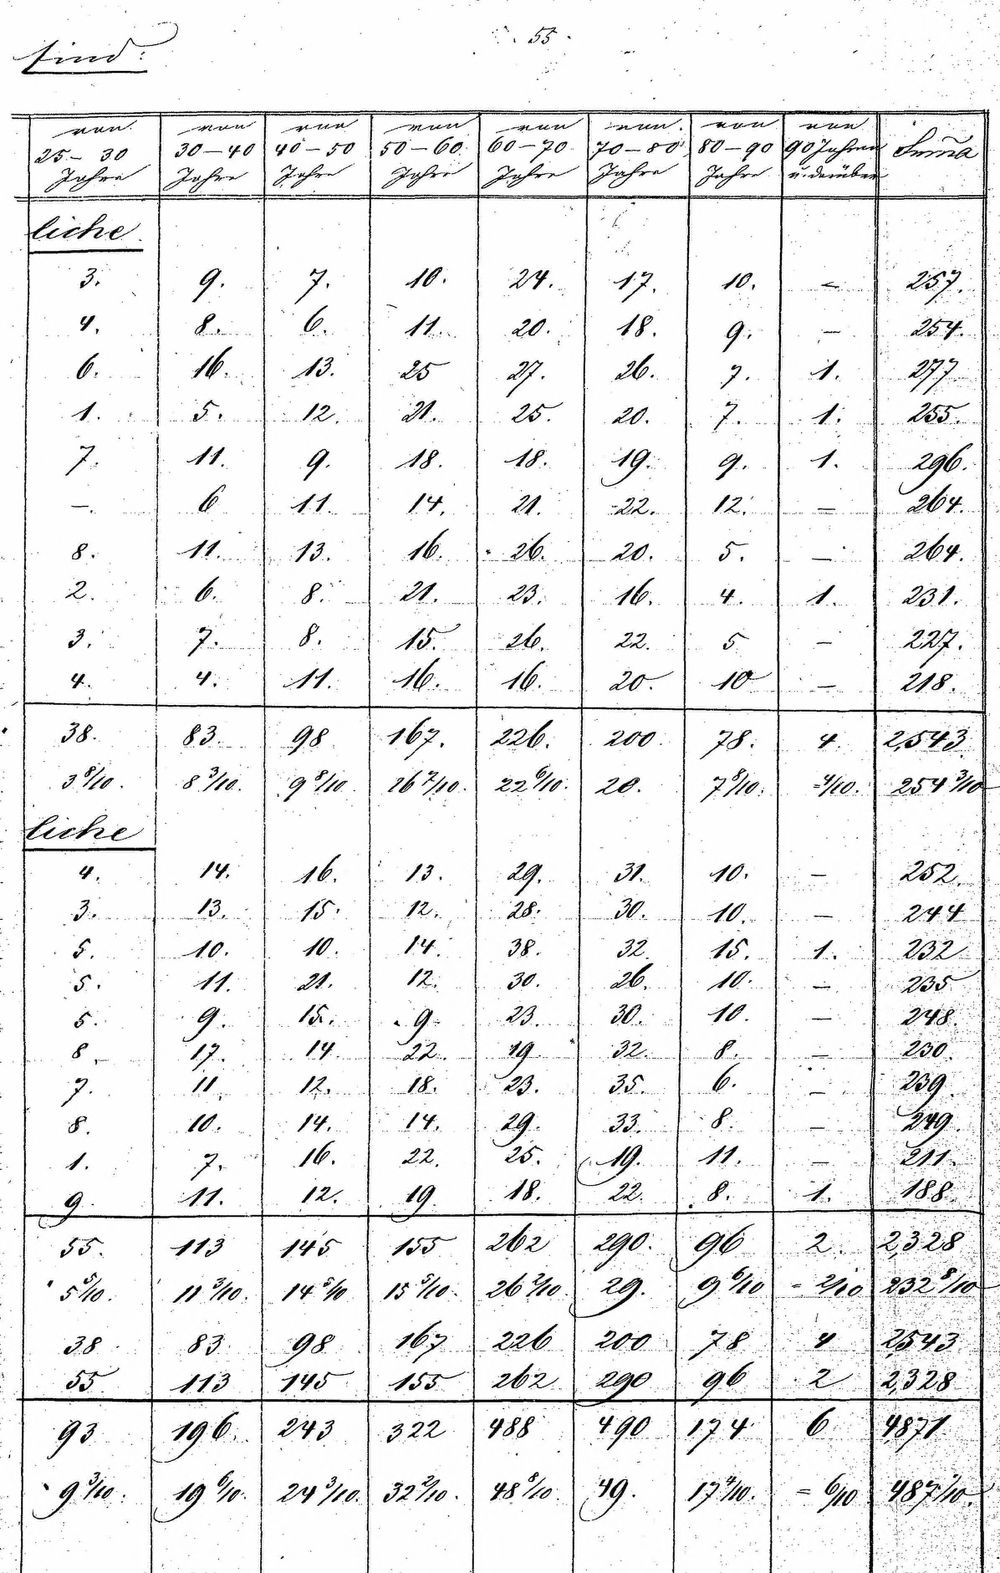 55
sind:
von 25 - 30 Jahre von 30 - 40 Jahre von 40 - 50 Jahre von 50 - 60 Jahre von 60 - 70 Jahre von 70 - 80 Jahre von 80 - 90 Jahre von 90 Jahren u. darüber Suma
liche
3. 9. 7. 10. 24. 17. 10. - 257.
4. 8. 6. 11. 20. 18. 9. - 254.
6. 16. 13. 25 27. 26. 7. 1. 277
1. 5. 12. 21. 25. 20. 7. 1. 255.
7. 11. 9. 18. 18. 19. 9. 1. 296.
-. 6 11. 14. 21. 22. 12. - 264.
8. 11. 13. 16. 26. 20. 5. - 264.
2. 6. 8. 21. 23. 16. 4. 1. 231.
3. 7. 8. 15. 26. 22. 5 - 227.
4. 4. 11. 16. 16. 20. 10 - 218.
38. 83. 98 167. 226. 200. 78. 4 2,543
3 8/10. 8 3/10. 9 8/10 16 7/10. 22 6/10. 20. 7 8/10. - 4/10. 254 3/10
liche
4. 14. 16. 13. 29. 31. 10. - 252.
3. 13. 15. 12. 28. 30. 10. - 244
5. 10. 10. 14. 38. 32 15. 1. 232
5. 11. 21. 12. 30. 26. 10. - 235
5. 9. 15. 9. 23. 30. 10. - 248.
8. 17. 14. 22. 19. 32. 8. - 230.
7. 11. 12. 18. 23. 35. 6. - 239
8. 10. 14. 14. 29. 33. 8. - 249.
1. 7. 16. 22. 25. 19. 11. - 211.
9. 11. 12. 19 18. 22. 8. 1. 188.
55. 113 145 155 262 290. 96 2. 2,328
5 5/10. 11 3/10. 14 5/10 15 5/10. 26 2/10. 29. 9 6/10 - 2/10 232 8/10
38 83 98 167 226 200 78 4 2543
55 113 145 155 262 290 96 2 2,328
93 196. 243 322 488 490 174 6 4871.
9 3/10. 19 6/10. 24 3/10. 32 2/10. 48 8/10. 49. 17 4/10. - 6/10 487 1/10.